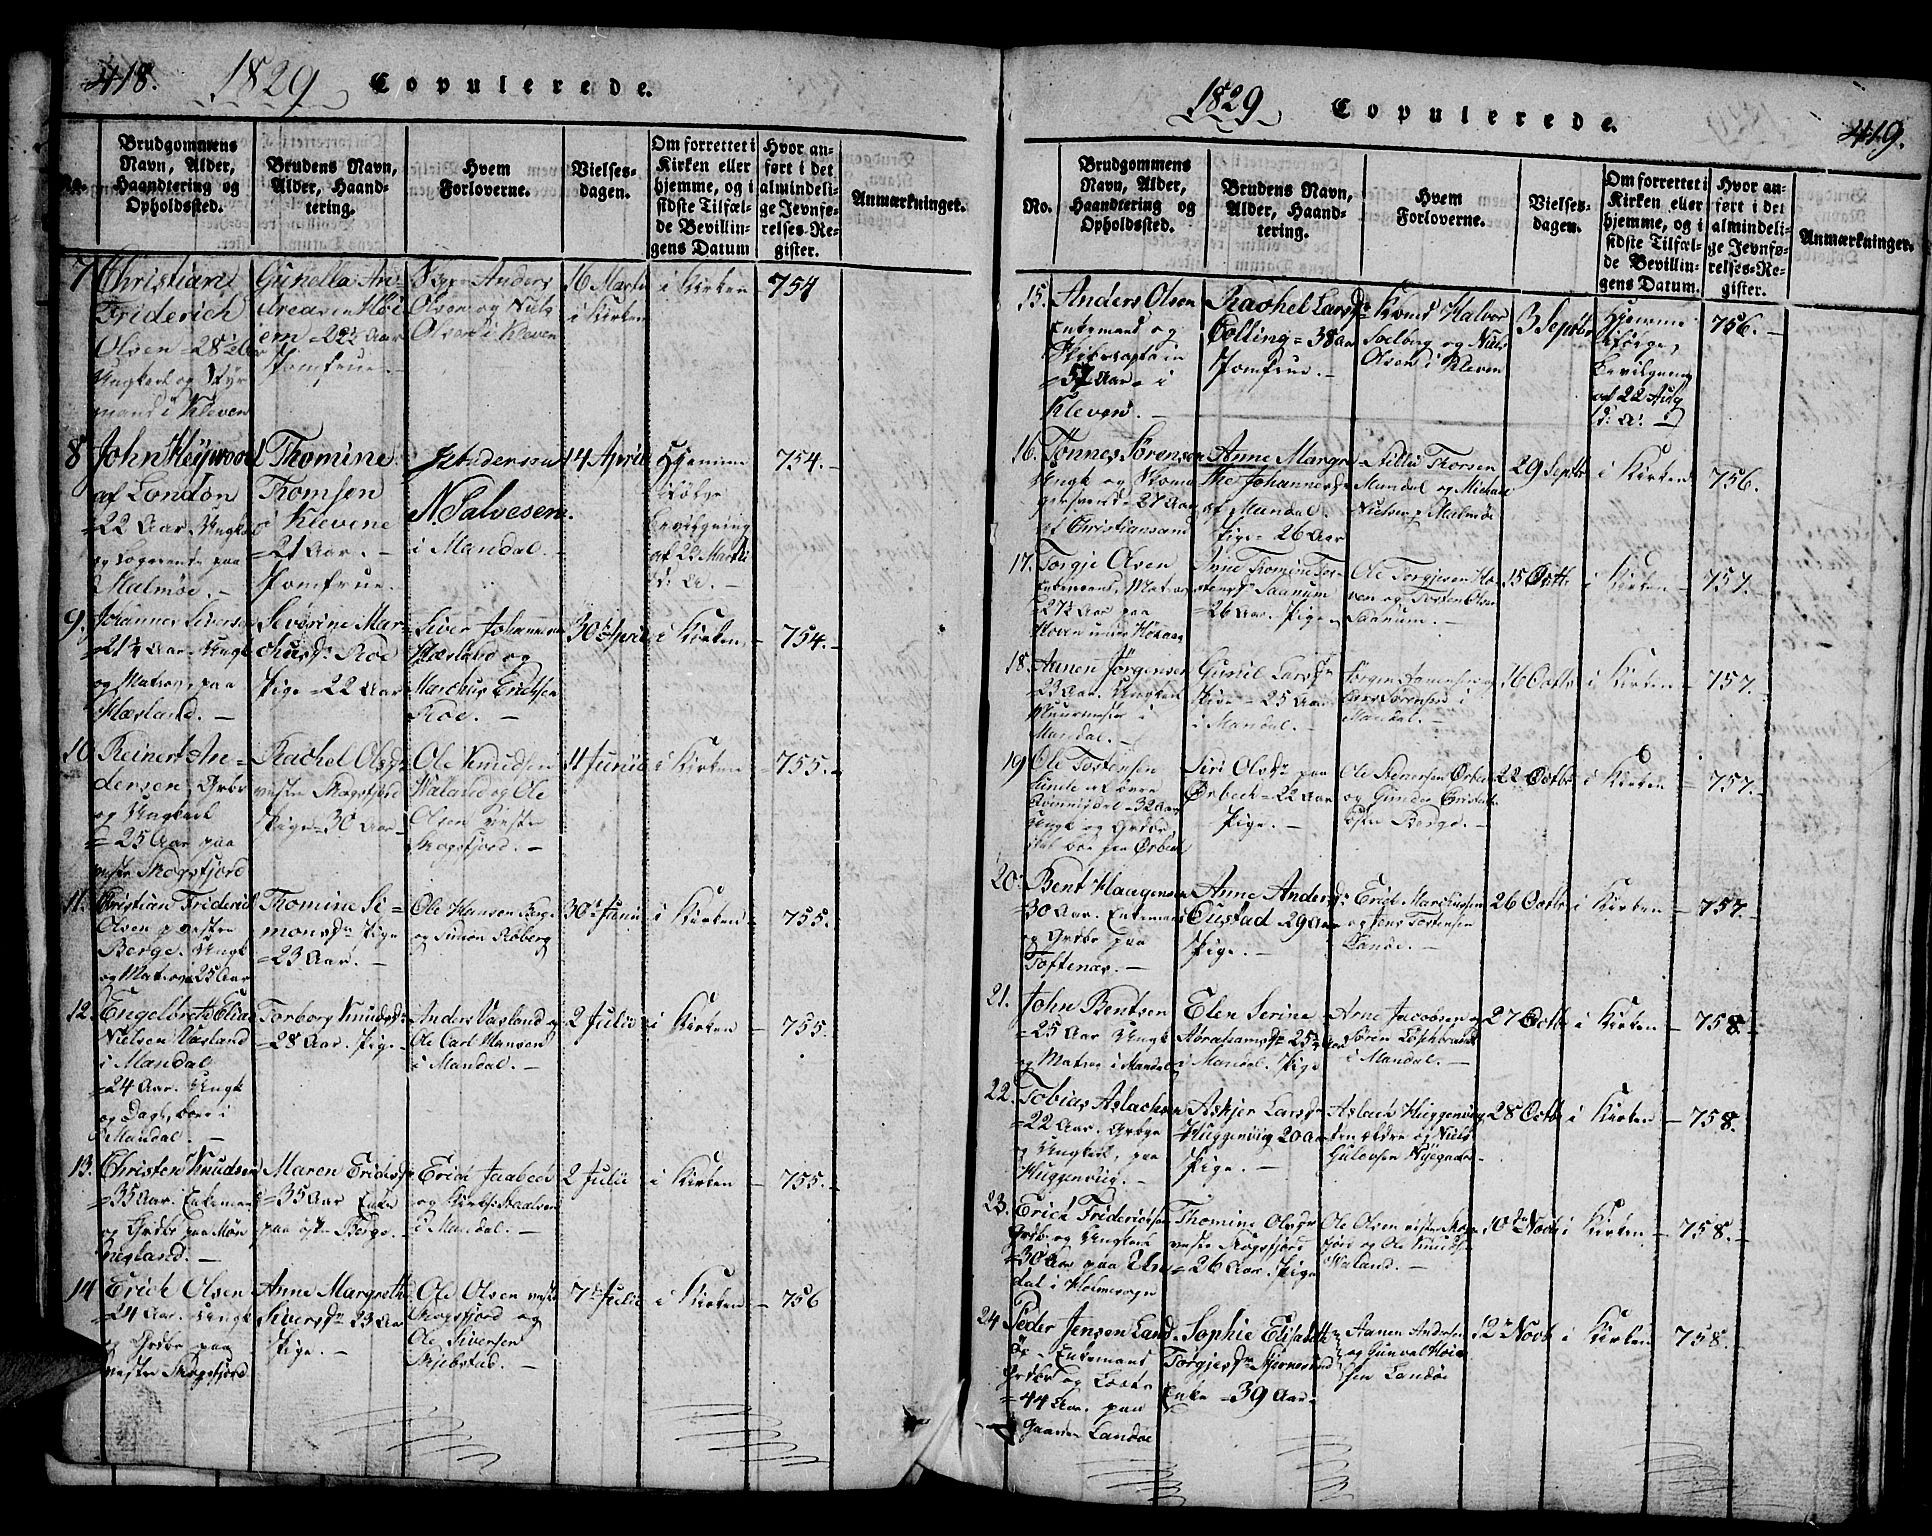 418. 1829 Copulerede.
No.
Brudgommens Navn, Alder, Haandtering og Opholdssted.
Brudens Navn, Alder, Haandtering.
Hvem Forloverne.
Vielsesdagen.
Om forrettet i Kirken eller hjemme, og i sidste Tilfælde Bevillingens Datum
Hvor anført i det almindelige Jevnførelses-Register.
Anmærkninger.
7
Christian
Friderich
Olsen = 28½ Aar
Ungkarl og Styr
mand i Kleven
Gunella An
dreasen Höi
em = 22½ Aar
Jomfrue. –
Anders
Olsen og Niels
Olsen i Kleven
16 Marts
i Kirken
i Kirken
754
8
John Heywood
af London
= 22 Aar. Ungkarl
og logerende paa
Malmøe. –
Thomine
Thomsen
i Klevene
= 21 Aar. –
Jomfrue. –
N Salvesen.
i Mandal. –
14 April
Hjemme
ifølge
Bevilgning
af 22 Marts
d: A. –
754. –
9.
Johannes Siversen
= 21¼ Aar. Ungk
og Matros, paa
Hæsland. –
Severine Mar-
chusdr Roe
Pige = 22 Aar
Siver Johannesen
Hæsland og
Marchus Erichsen
Roe. –
30 April
i Kirken –
754. –
10
Reinert An-
dersen, Grdbr
og Ungkarl
= 25 Aar paa
vestre Skogsfjord
Rachel Olsdr
vestre Skogsfjord
Pige = 30 Aar –
Ole Knudsen
Waland og Ole
Olsen vestre
Skogsfjord. –
4 Junii
i Kirken
755. –
11.
Christian Friderich
Olsen p. vestre
Berge. Ungk
og Matros 25 Aar
Thomine Si-
monsdr Pige
= 23 Aar. –
Ole Hansen Berge
og Simon Roberg
30 Junii
i Kirken –
755. –
12.
Engelbreth Elias
Nielsen Vasland
i Mandal
= 24 Aar. Ungk
og Dagl, boer i
Mandal. –
Torborg Knudsdr
= 28 Aar. Pige –
Anders Vasland og
Ole Carl Hansen
i Mandal. –
2 Julii
i Kirken –
755.
13.
Christen Knudsen
= 35 Aar. Enkemand
og Grdbr paa Møn
nesland. –
Maren Erichsdr
= 35 Aar Enke
paa østre Berge. –
Erich Jaabech
i Mandal. –
2 Julii
i Kirken –
755. –
14
Erich Olsen
= 24 Aar. Ungk
og Grdbr paa
vestre Skogsfjord
Anne Margrethe
Siversdr 23 Aar
Pige. –
Ole Olsen vestre
Skogsfjord og
Ole Siversen
Skjebstad. –
7 Julii
i Kirken –
756
1829 Copulerede. 419.
No.
Brudgommens Navn, Alder, Haandtering og Opholdssted.
Brudens Navn, Alder, Haandtering.
Hvem Forloverne.
Vielsesdagen.
Om forrettet i Kirken eller hjemme, og i sidste Tilfælde Bevillingens Datum.
Hvor anført i det almindelige Jevnførelses-Register.
Anmærkninger.
15.
Anders Olsen
Enkemand og
Skibscaptain
= 57 Aar. i
Kleven. –
Rachel Larsdr
Colling = 38 Aar
Jomfrue. –
Halvor
Solberg og Niels
Olsen i Kleven
3 Septbr
Hjemme
ifölge,
Bevilgning
af 22 Aug
d: A: –
756. –
16.
Tønnes Sørensen
Ungk og Skoma
gersvend = 27 Aar
af Christiansand
Anne Margre
the Johannesdr
af Mandal.
Pige = 26 Aar
Thorsen
Mandal og Michael
Nielsen p. Malmöe
29 Septbr
i Kirken
756.
17.
Torgje Olsen
Enkemand, Matros
= 27½ Aar paa
Anne Thomine Tor-
stensdr Saanum
= 26 Aar. Pige
Ole Torgjesen Ho-
ven og Torsten Olsen
Saanum. –
15 Octbr
i Kirken –
757. –
18.
Aanen Jörgensen
= 23 Aar. Ungkarl
Muurmester i
Mandal. –
Gunil Larsdr
Pige = 25 Aar
i Mandal. –
Jörgen Aanensen og
Lars Sørensen i
Mandal. –
16 Octbr
i Kirken –
757. –
19
Ole Tostensen
Siri Olsdr paa
Ørbech = 22 Aar
Pige. –
Ole Stenersen Ørbech
og Gunder
østre Berge. –
22 Octbr
i Kirken –
757. –
20.
Bent Haagensen
= 30 Aar. Enkemand
og Grdbr paa
Toftenæs. –
Anne Andersdr
Eustad 29 Aar
Pige. –
Erich Marchussen
og Jens Torstensen
Sande. –
26 Octbr
i Kirken –
757. –
21.
John Bentsen
= 25 Aar Ungk
og Matros i Mandal
Elen Serine
Abrahamsdr 25¾ Aar
i Mandal. Pige
Arne Jacobsen og
Søren
i Mandal. –
27 Octbr
i Kirken –
758. –
22.
Tobias Aslachsen
= 22 Aar. Grdbr
og Ungkarl, paa
Huggenvig. –
Askjer Larsdr
Huggenvig 20 Aar
Pige. –
Aslach Huggenvig
den ældre og Niels
Gulovsen Nyegaard –
28 Octbr
i Kirken –
758.
23.
Erich Friderichsen
Grdbr og Ungkarl
= 30 Aar paa Ulve
dal i Holmesogn
Thomine Olsdr
vestre Skogsfjord
= 26 Aar. Pige
Ole Olsen vestre Skogs
fjord og Ole Knudsen
Waland. –
10 Novb
i Kirken –
758. –
24
Peder Jensen Land
öe – Enkemand
Grdbr og Loods
= 44 Aar. paa
Gaarden Landöe
Sophie Elisabeth
Torgjesdr Skjernesund
Enke = 39 Aar.
Aanen Andersen
og Gunval Höie
sen Landöe
12 Novb
i Kirken –
758. –